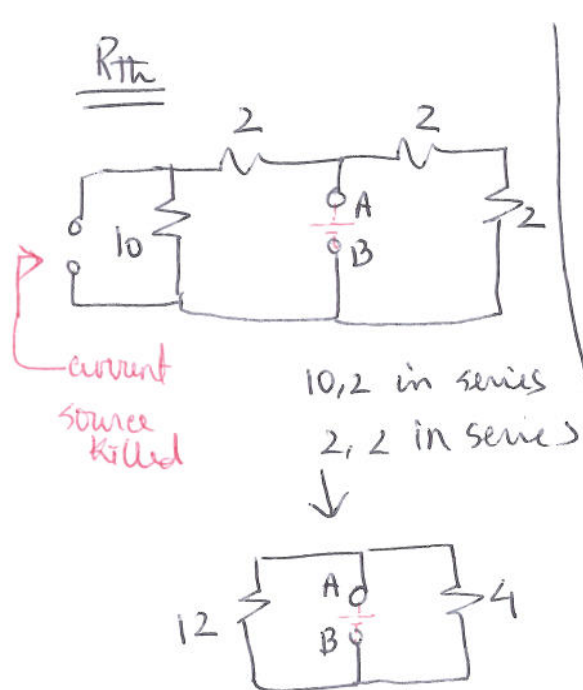 Rth
2 2
10 A 2
B
current
source
killed
10,2 in series
2, 2 in series
12 A 4
B